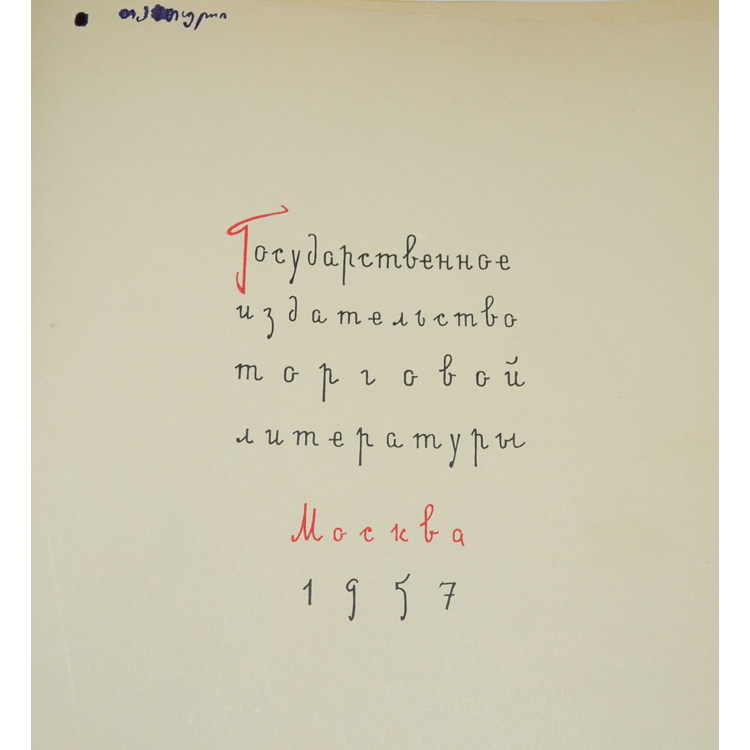 Государственное
издательство
торговой
литературы
Москва
1957